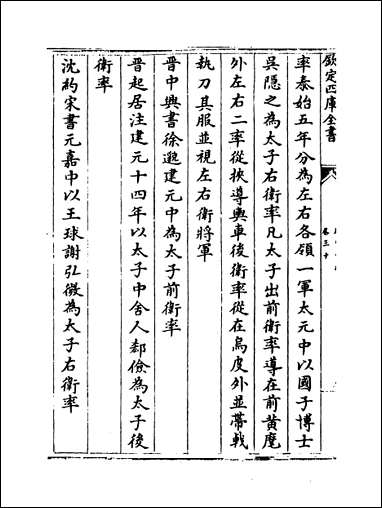 欽定四庫全書
率泰始五年分為左右各領一軍太元中以國子博士
吳隱之為太子右衛率凡太子出前衛率導在前黃麾
外左右二率從挾導輿車後衛率從在烏皮外並帶戟
執刀其服並視左右衛將軍
晉中興書徐邈建元中為太子前衛率
晉起居注建元十四年以太子中舍人郄儉為太子後
衛率
沈約宋書元嘉中以王球謝弘微為太子右衛率